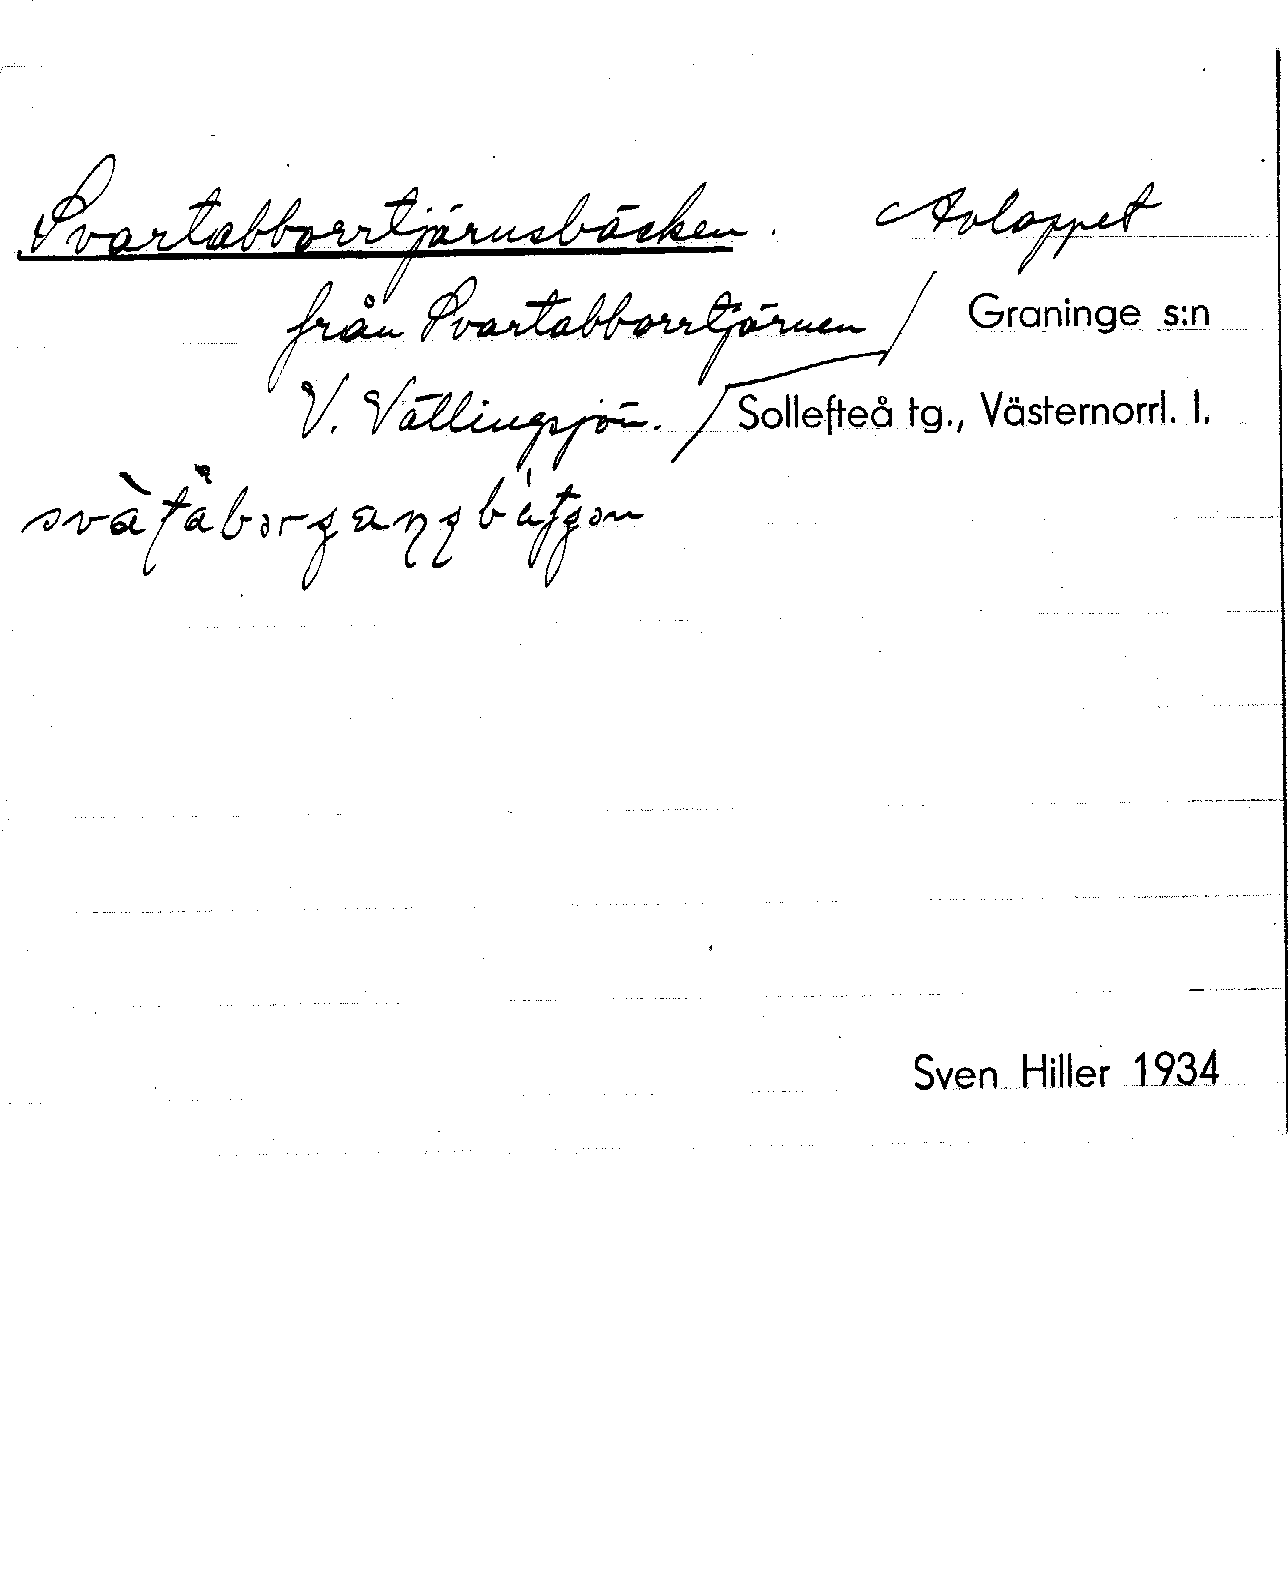 Svartabborrtjärnsbäcken. Avloppet
från Svartabborrtjärnen / Graninge s:n
V. Vällingsjön. / Sollefteå tg., Västernorrl. l.
Sven Hiller 1934